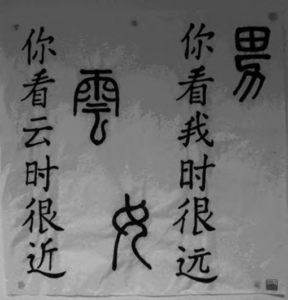 男
你看我时很远
女
雲
你看云时很近